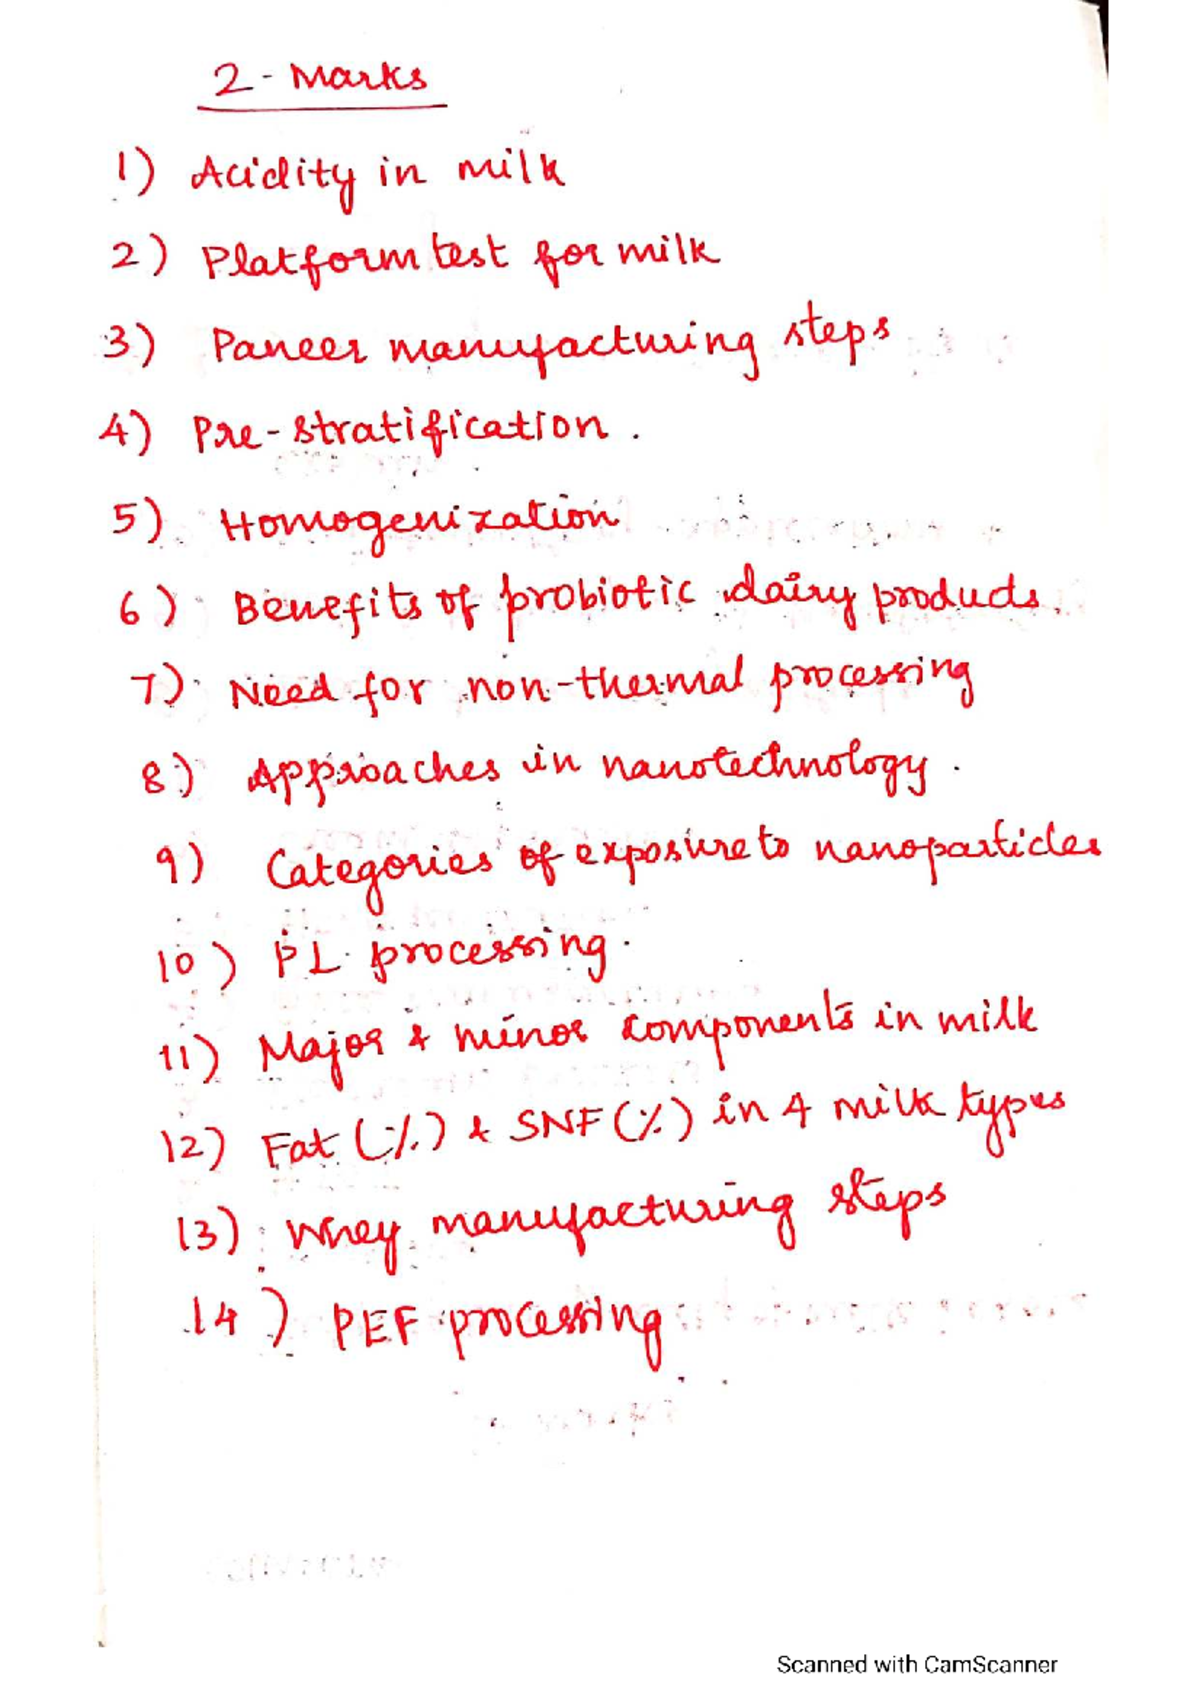 2 - Marks
1) Acidity in milk
2) Platform test for milk
3) Paneer manufacturing steps
4) Pre-stratification.
5) Homogenization
6) Benefits of probiotic dairy products.
7) Need for non-thermal processing
8) Approaches in nanotechnology.
9) Categories of exposure to nanoparticles
10) PL processing.
11) Major & minor components in milk
12) Fat (%) & SNF (%) in 4 milk types
13) Whey manufacturing steps
14) PEF processing
Scanned with CamScanner